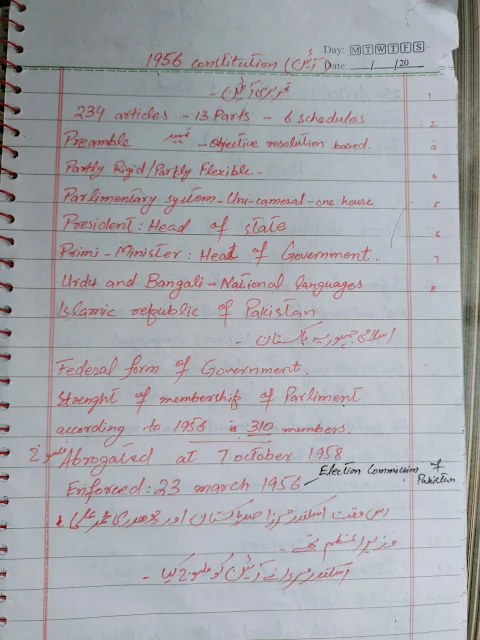 Day: M T W T F S
1956 constitution (آئین)
Date: / /20
تحریری آئین -
234 articles - 13 Parts - 6 schedules
Preamble تمہید - Objective resolution based.
Partly Rigid/Partly Flexible -
Parlimentary system - Uni-cameral - one house
President : Head of state
Primi - Minister : Head of Government.
Urdu and Bangali - National languages
Islamic republic of Pakistan
اسلامی جمہوریہ پاکستان -
Federal form of Government.
Strenght of membership of Parliment
according to 1956 is 310 members.
منسوخ Abrogated at 7 october 1958
Election Commission of Pakistan
Enforced : 23 march 1956
اس وقت اسکندر مرزا صدر پاکستان اور چوہدری محمد علی
وزیر اعظم تھے -
اسکندر مرزا نے آئین کو منسوخ کیا -
1
2
3
4
5
6
7
8